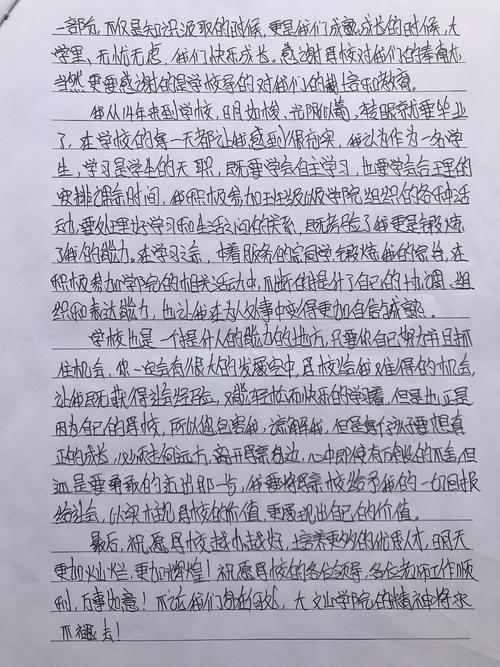 一部分，不仅是知识汲取的时候，更是我们成熟成长的时候，大
学里，无忧无虑，我们快乐成长。感谢母校对我们的
当然更要感谢的是学校领导的对我们的和教育。
我从14年来到学校，日月如梭，光阴似箭，转眼就要毕业
了，在学校的每一天都让我感到很充实，我认为作为一名学
生，学习是学生的天职，既要学会自主学习，也要学会合理的
安排课余时间，我积极参加班级及学院组织的各种活
动，要处理好学习和生活之间的关系，既考验了我更是锻炼
了我的能力。在学习之余，本着服务的宗同学锻炼我的宗旨，在
积极参加学院的相关活动中，不断的提升了自己的协调、组
织和表达能力，也让我在为人处事中变得更加自信与成熟。
学校也是一个提升人的能力的地方，只要你自己努力并且抓
住机会，你一定会有很大的发展空中，母校给我难得的机会，
让我既能获得社会经验，又能轻松而快乐的学习着，但是也正是
因为自己的母校，所以您包容我，谅解我，但是每个孩子要想真
正的成长，必须走向远方，离开母亲身边，心中即使有万般的不舍，但
还是要勇敢的迈出那一步，我要将母亲校给予我的一切回报
给社会，以实现母校的价值，更要现出自己的价值。
最后，祝愿母校越办越好，培养更多的优质人才，明天
更加灿烂，更加辉煌！祝愿母校的各位领导，各位老师工作顺
利，万事如意！不论我们身处何处，大学院的精神将永
不褪去！